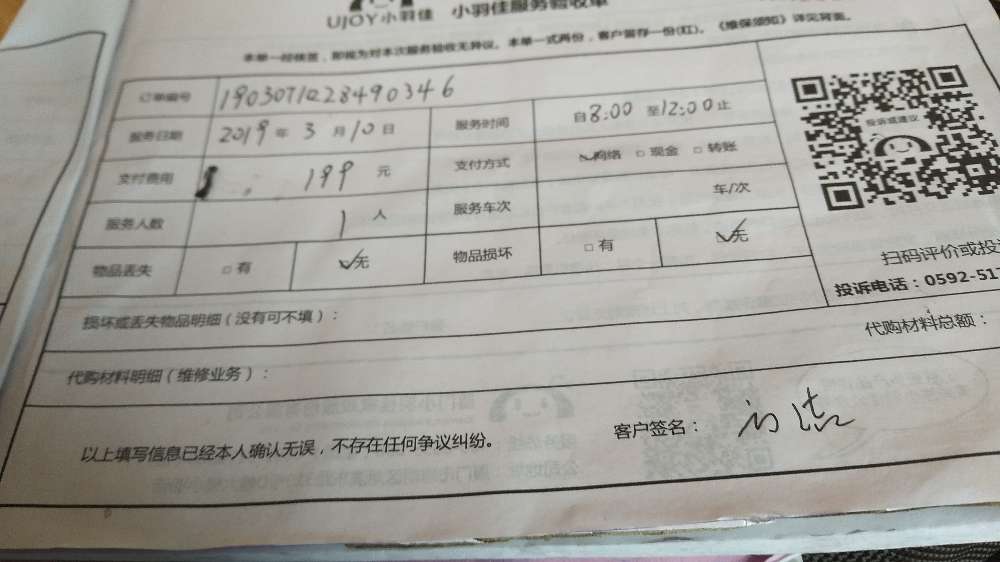 UJOY小羽佳 小羽佳服务验收单
本单一经核签，即视为对本次服务验收无异议。本单一式两份，客户留存一份(红)。《维保须知》详见背面。
订单编号 1903071228490346
服务日期 2019年3月10日 服务时间 自8:00至12:00止
支付费用 199元 支付方式 ☑网络 □现金 □转账
服务人数 1人 服务车次 车/次
物品丢失 □有 ☑无 物品损坏 □有 ☑无
投诉或建议
扫码评价或投
投诉电话：0592-51
损坏或丢失物品明细（没有可不填）：
代购材料明细（维修业务）： 代购材料总额：
以上填写信息已经本人确认无误，不存在任何争议纠纷。 客户签名：